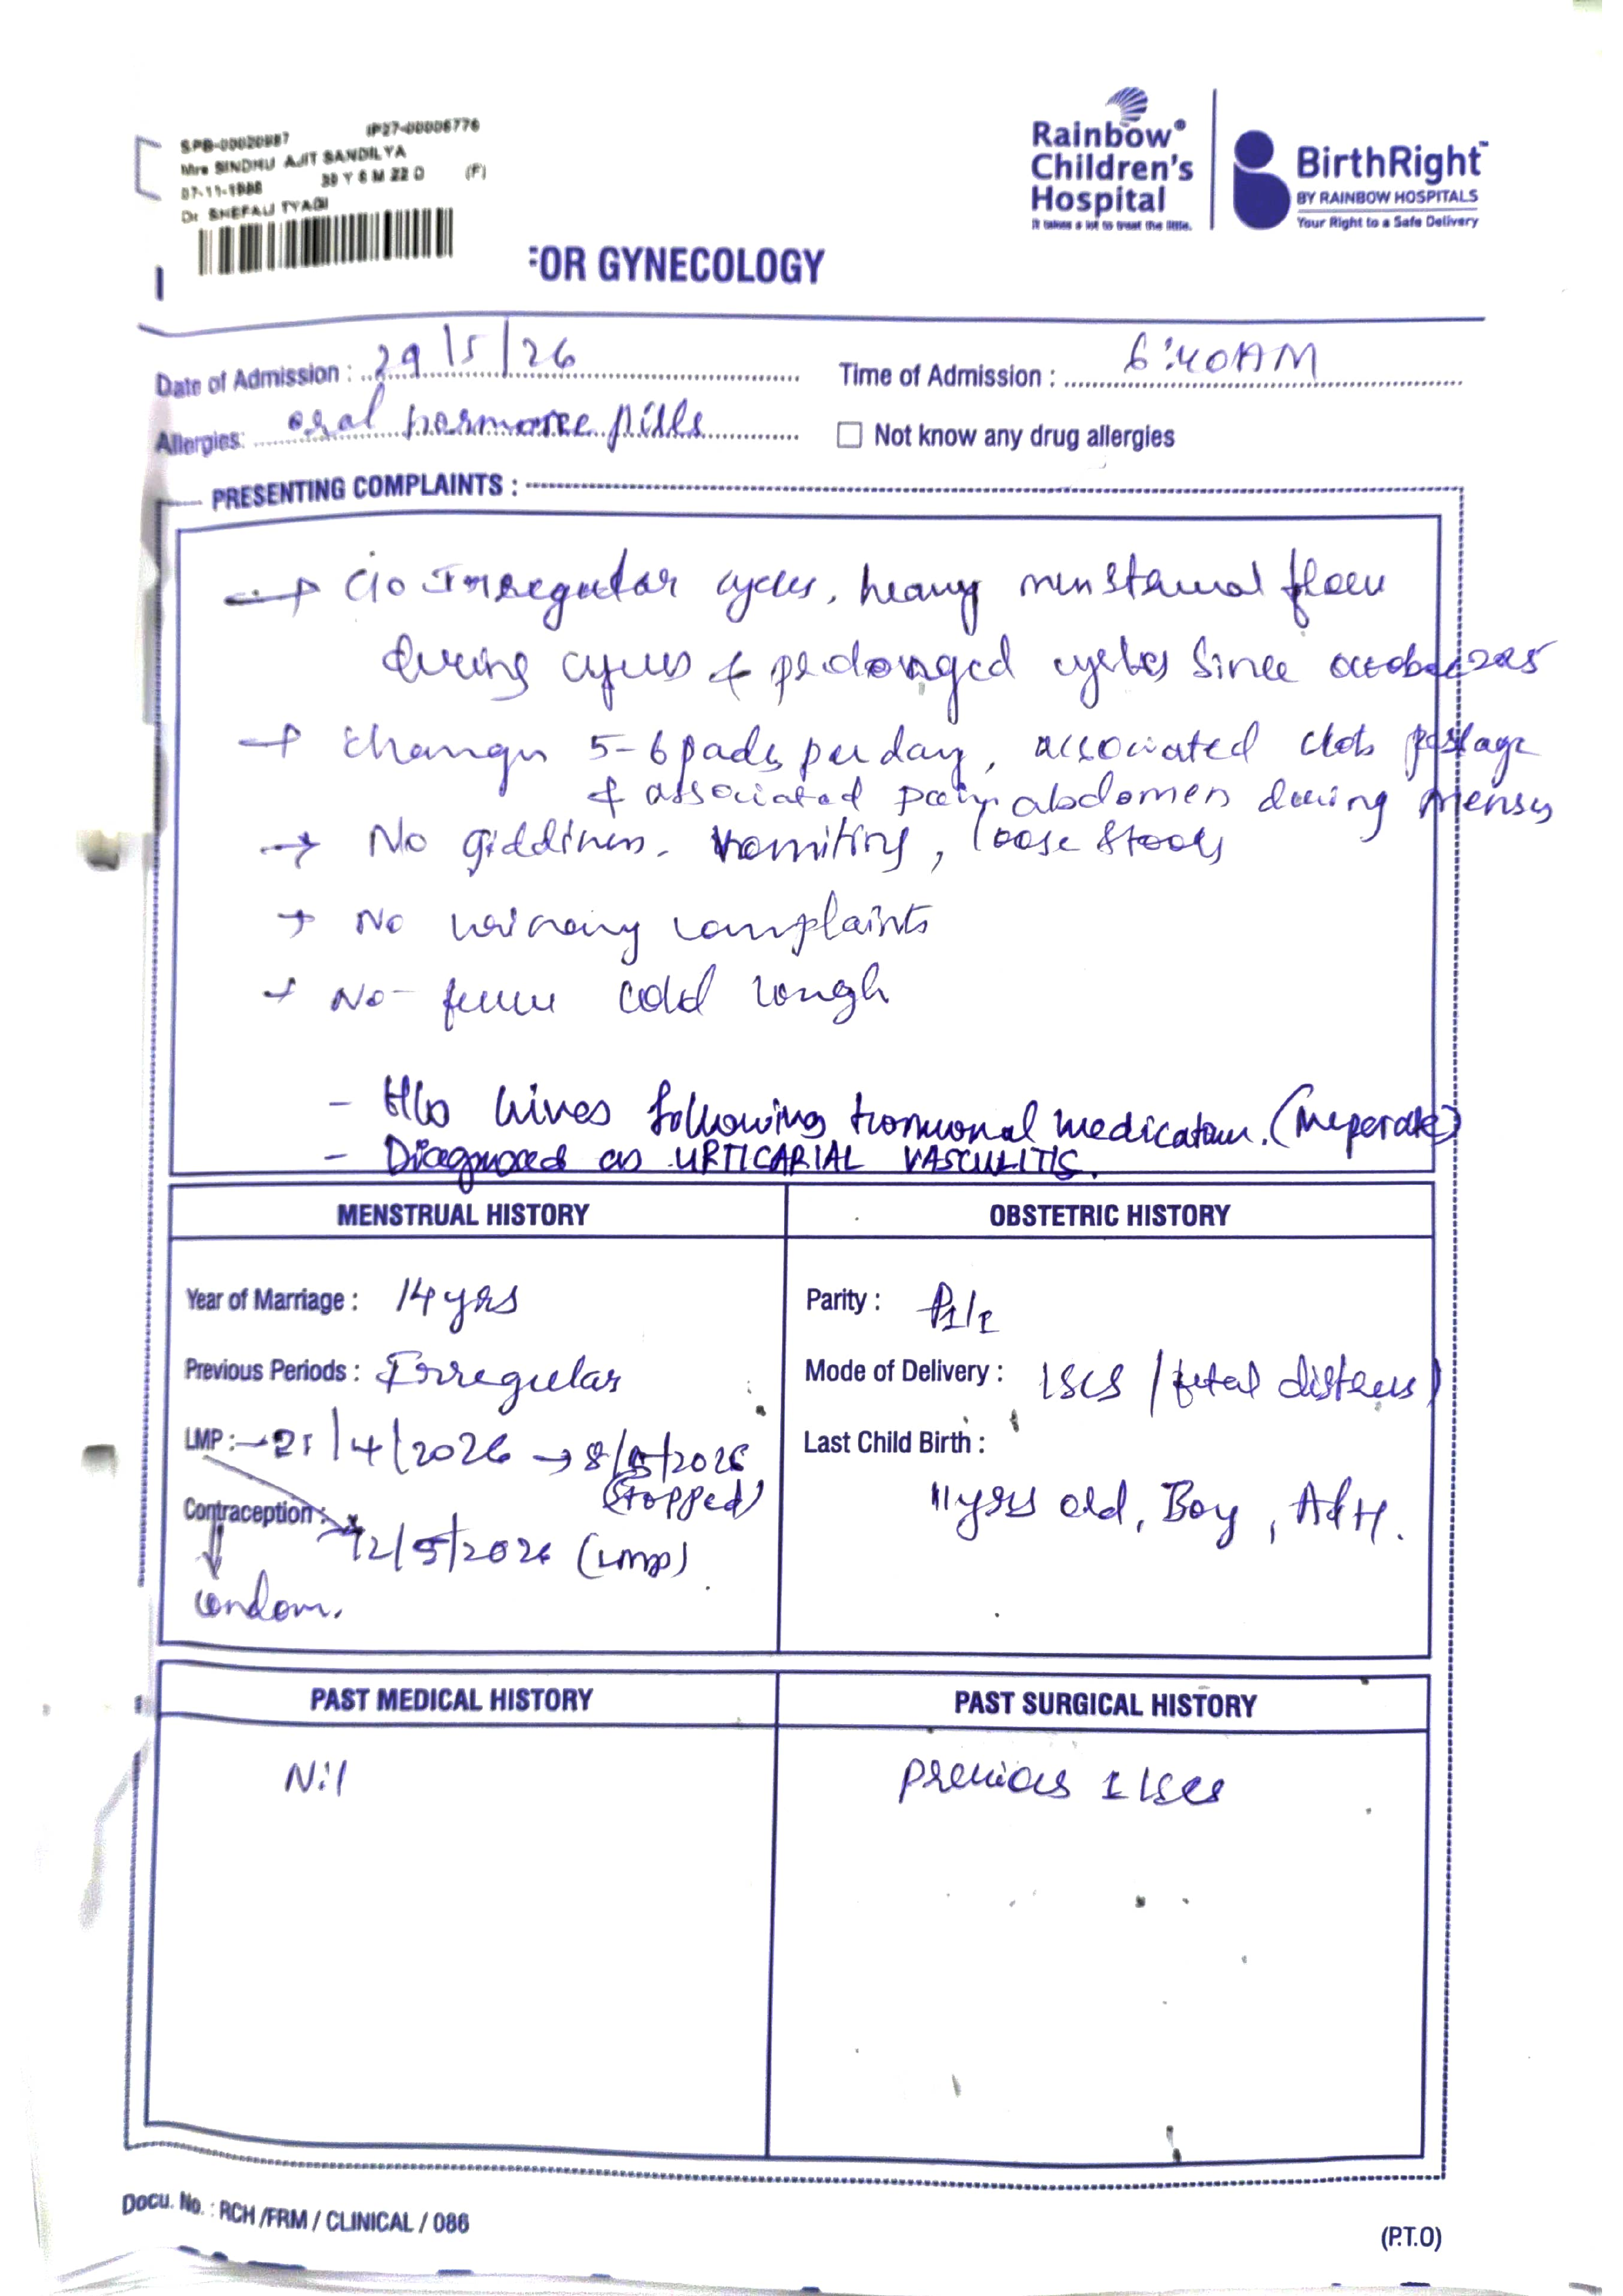 SPB-00020987 IP27-00006776
Mrs SINDHU AJIT SANDILYA
07-11-1986 39 Y 6 M 22 D (F)
Dr SHEFALI TYAGI
Rainbow®
Children's
Hospital
It takes a lot to treat the little.
BirthRight™
BY RAINBOW HOSPITALS
Your Right to a Safe Delivery
FOR GYNECOLOGY
Date of Admission : 29/5/26
Time of Admission : 6:40AM
Allergies: oral hormone pills
Not know any drug allergies
PRESENTING COMPLAINTS :
→ C/o Irregular cycles, heavy menstrual flow
during cycles & prolonged cycles since october 2025
→ changes 5-6 pads per day, associated clots passage
& associated pain abdomen during menses
→ No giddiness, vomiting, loose stools
→ No urinary complaints
→ No fever cold cough
- H/o hives following hormonal medication. (Meperate)
- Diagnosed as URTICARIAL VASCULITIS.
MENSTRUAL HISTORY
Year of Marriage : 14 yrs
Previous Periods : Irregular
LMP :→ 21/4/2026 → 8/5/2026
(stopped)
Contraception : 12/5/2026 (LMP)
condom.
OBSTETRIC HISTORY
Parity : P1/1
Mode of Delivery : LSCS / fetal distress)
Last Child Birth :
11 yrs old, Boy, A&H.
PAST MEDICAL HISTORY
Nil
PAST SURGICAL HISTORY
previous 1 LSCS
Docu. No. : RCH /FRM / CLINICAL / 086
(P.T.O)